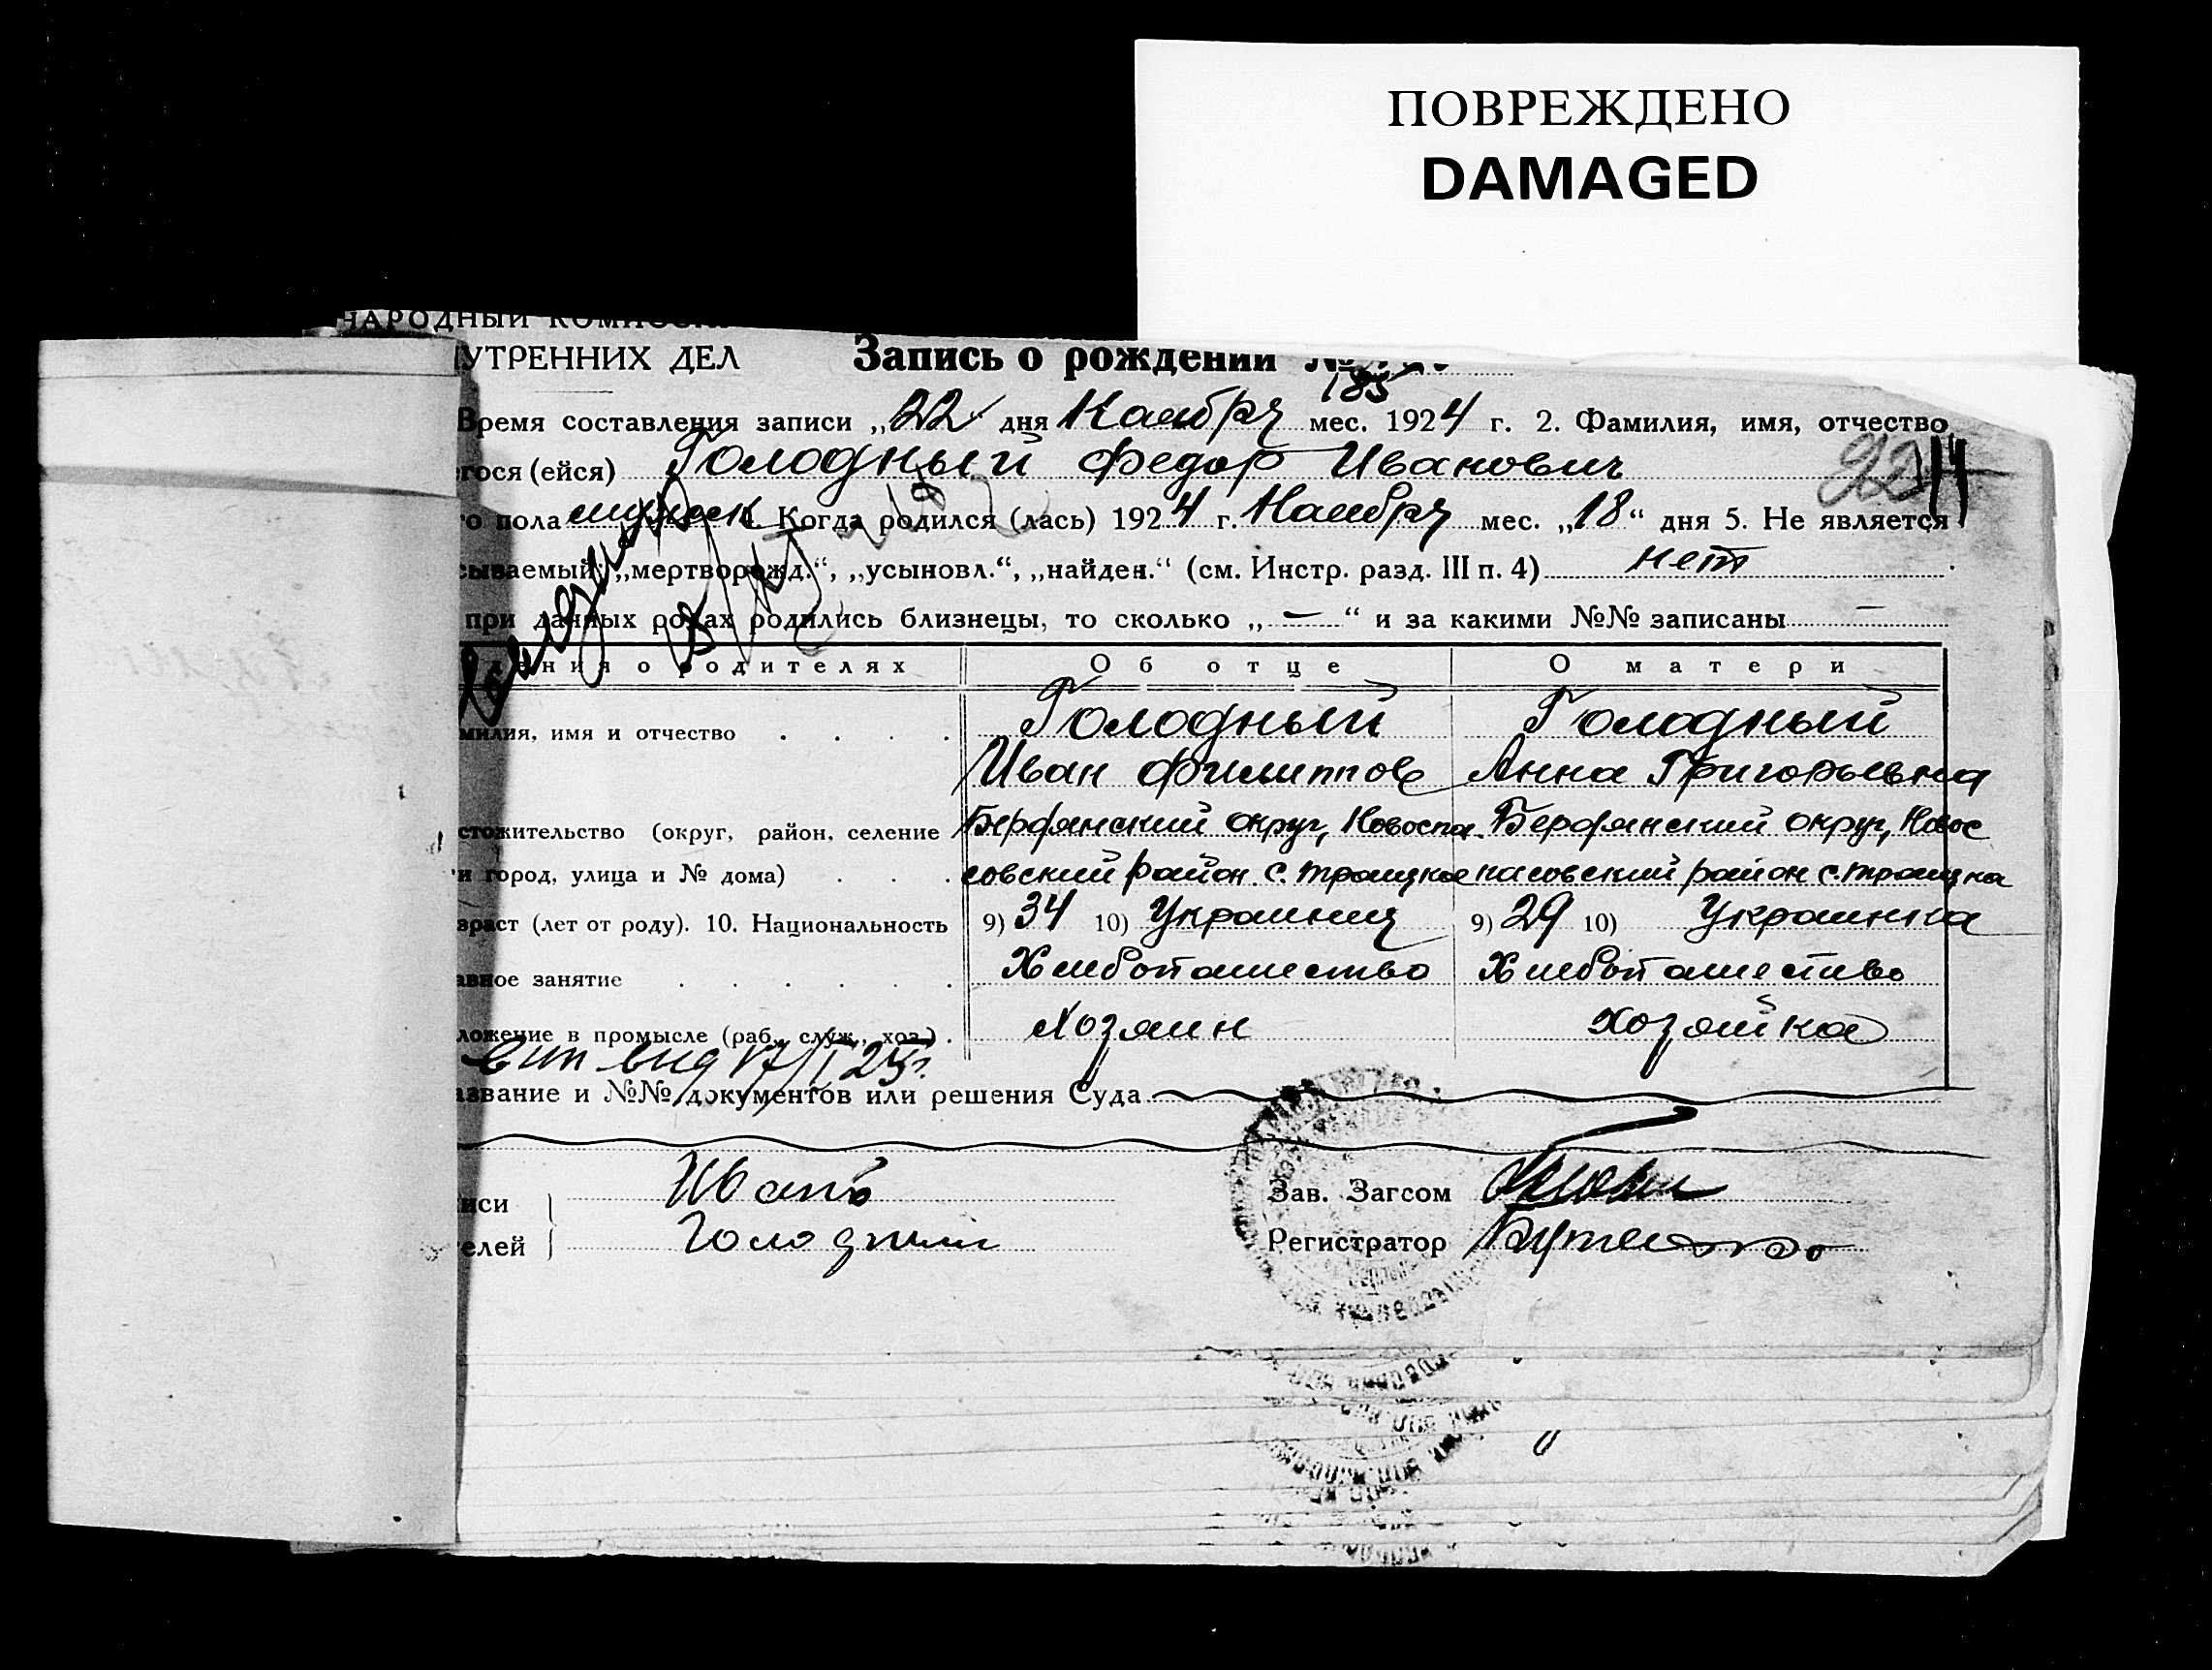 ПОВРЕЖДЕНО
DAMAGED
НАРОДНЫЙ
УТРЕННИХ ДЕЛ
Запись о рождении №
185
Время составления записи „22“ дня Наебря мес. 1924 г. 2. Фамилия, имя, отчество
гося (ейся) Голодный Федор Иванович
22
го пола мужск 4. Когда родился (лась) 1924 г. Наебря мес. „18“ дня 5. Не является
сываемый: „мертворожд.“, „усыновл.“, „найден.“ (см. Инстр. разд. III п. 4) нет
при данных родах родились близнецы, то сколько „—“ и за какими №№ записаны —
дения о родителях Об отце О матери
милия, имя и отчество Голодный Голодный
Иван Филиппов Анна Григорьевна
стожительство (округ, район, селение Бердянский округ, Новоспа Бердянский округ, Новос
и город, улица и № дома) совский район с. Троицкое пасовский район с. Троицка
зраст (лет от роду). 10. Национальность 9) 34 10) Украинец 9) 29 10) Украинка
авное занятие Хлеботашество Хлеботашество
ложение в промысле (раб., служ., хоз.) Хозяин Хозяйка
вип вид 17/I 25г.
азвание и №№ документов или решения Суда
иси Иванъ Зав. Загсом
елей Голодный Регистратор Бутенко